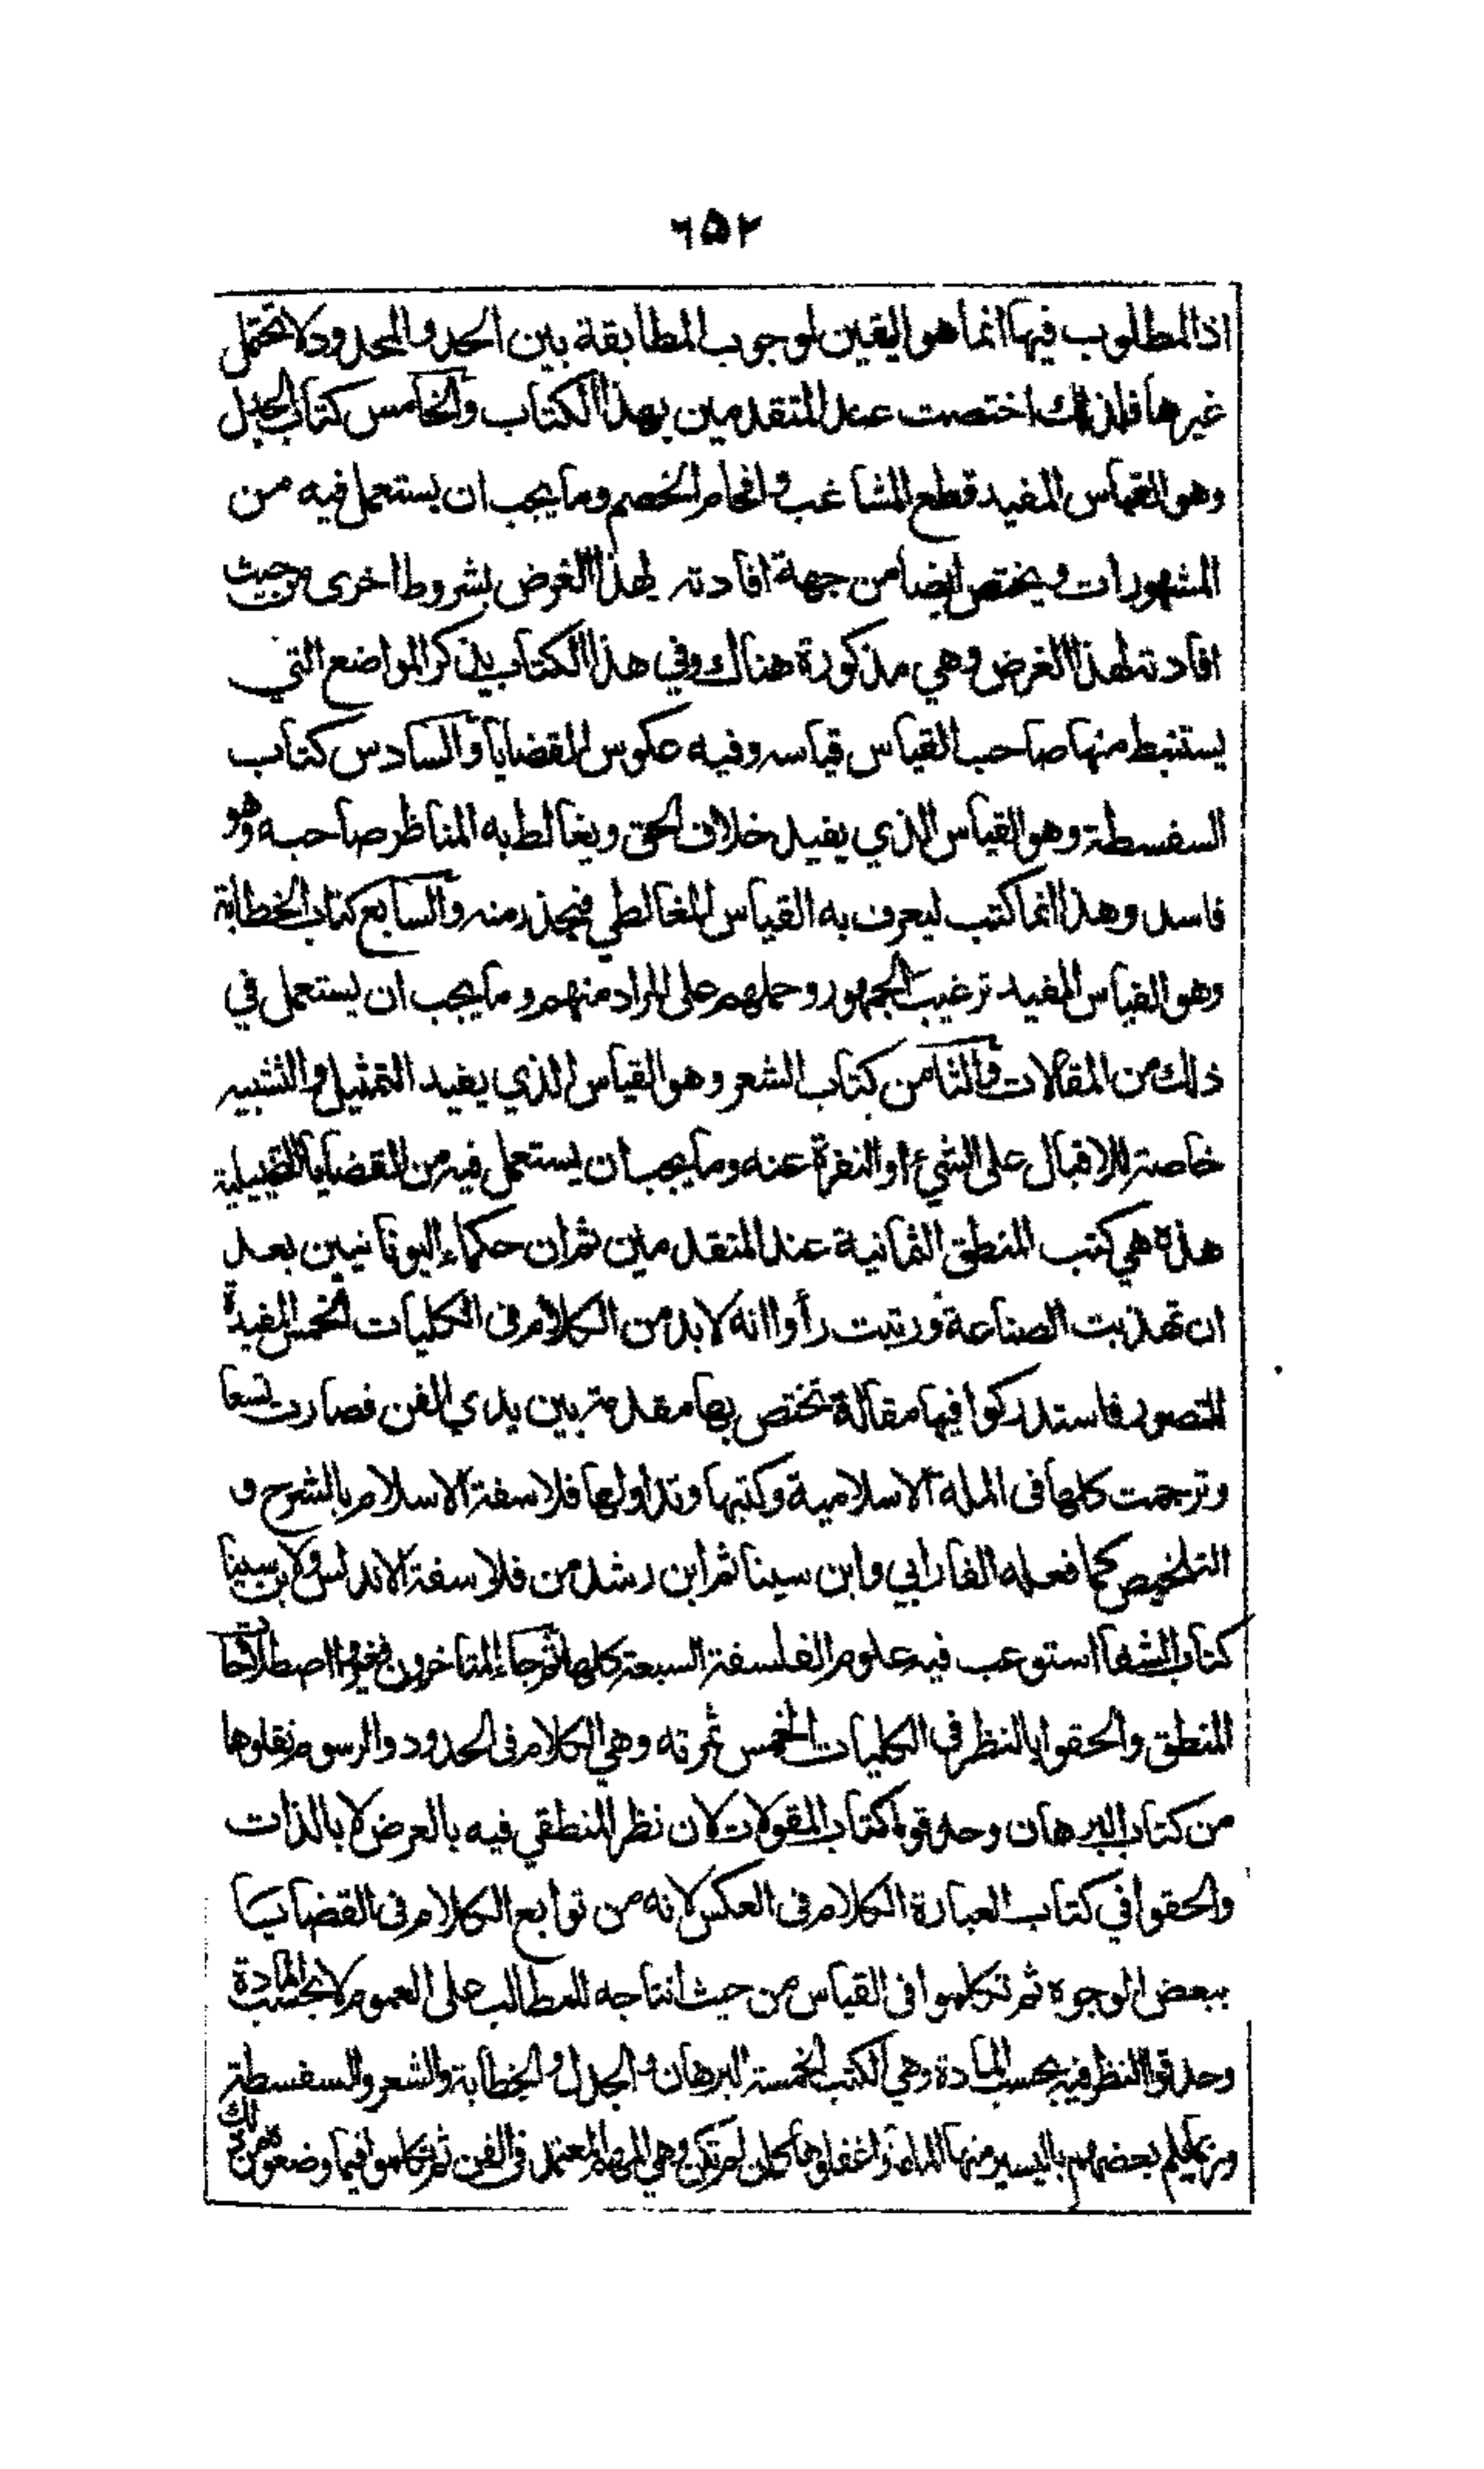 ٦٥٢
اذا المطلوب فيها انما هو اليقين لوجوب المطابقة بين الحد والمحدود لا تحتمل
غيرها فلذلك اختصت عند المتقدمين بهذا الكتاب والخامس كتاب الجدل
وهو القياس المفيد قطع المشاغب وافحام الخصم وما يجب ان يستعمل فيه من
المشهورات ويختص ايضا من جهة افادته لهذا الغرض بشروط اخرى من حيث
افادته لهذا الغرض وهي مذكورة هناك وفي هذا الكتاب يذكر المواضع التي
يستنبط منها صاحب القياس قياسه وفيه عكوس القضايا والسادس كتاب
السفسطة وهو القياس الذي يفيد خلاف الحق ويغالط به المناظر صاحبه وهو
فاسد وهذا انما كتب ليعرف به القياس المغالطي فيحذر منه والسابع كتاب الخطابة
وهو القياس المفيد ترغيب الجمهور وحملهم على المراد منهم وما يجب ان يستعمل في
ذلك من المقالات والثامن كتاب الشعر وهو القياس الذي يفيد التمثيل والتشبيه
خاصة للاقبال على الشئ او النفرة عنه وما يجب ان يستعمل فيه من القضايا التخييلية
هذه هي كتب المنطق الثمانية عند المتقدمين ثم ان حكماء اليونانيين بعد
ان تهذبت الصناعة ورتبت رأوا انه لا بد من الكلام فى الكليات الخمس المفيدة
للتصور فاستدركوا فيها مقالة تختص بها مقدمة بين يدي الفن فصارت تسعا
وترجمت كلها فى الملة الاسلامية وكتبها وتداولها فلاسفة الاسلام بالشرح و
التلخيص كما فعله الفارابي وابن سينا ثم ابن رشد من فلاسفة الاندلس ولابن سينا
كتاب الشفا استوعب فيه علوم الفلسفة السبعة كلها ثم جاء المتاخرون فغيروا اصطلاح
المنطق والحقوا بالنظر في الكليات الخمس ثمرته وهي الكلام فى الحدود والرسوم نقلوها
من كتاب البرهان وحذفوا كتاب المقولات لان نظر المنطقي فيه بالعرض لا بالذات
والحقوا في كتاب العبارة الكلام فى العكس لانه من توابع الكلام فى القضايا
ببعض الوجوه ثم تكلموا فى القياس من حيث انتاجه للمطالب على العموم لا بحسب المادة
وحذفوا النظر فيه بحسب المادة وهي الكتب الخمسة البرهان والجدل والخطابة والشعر والسفسطة
وربما يلم بعضهم باليسير منها الماما واغفلوها كان لم تكن وهي المهم المعتمد فى الفن ثم تكلموا فيما وضعوه من ذلك